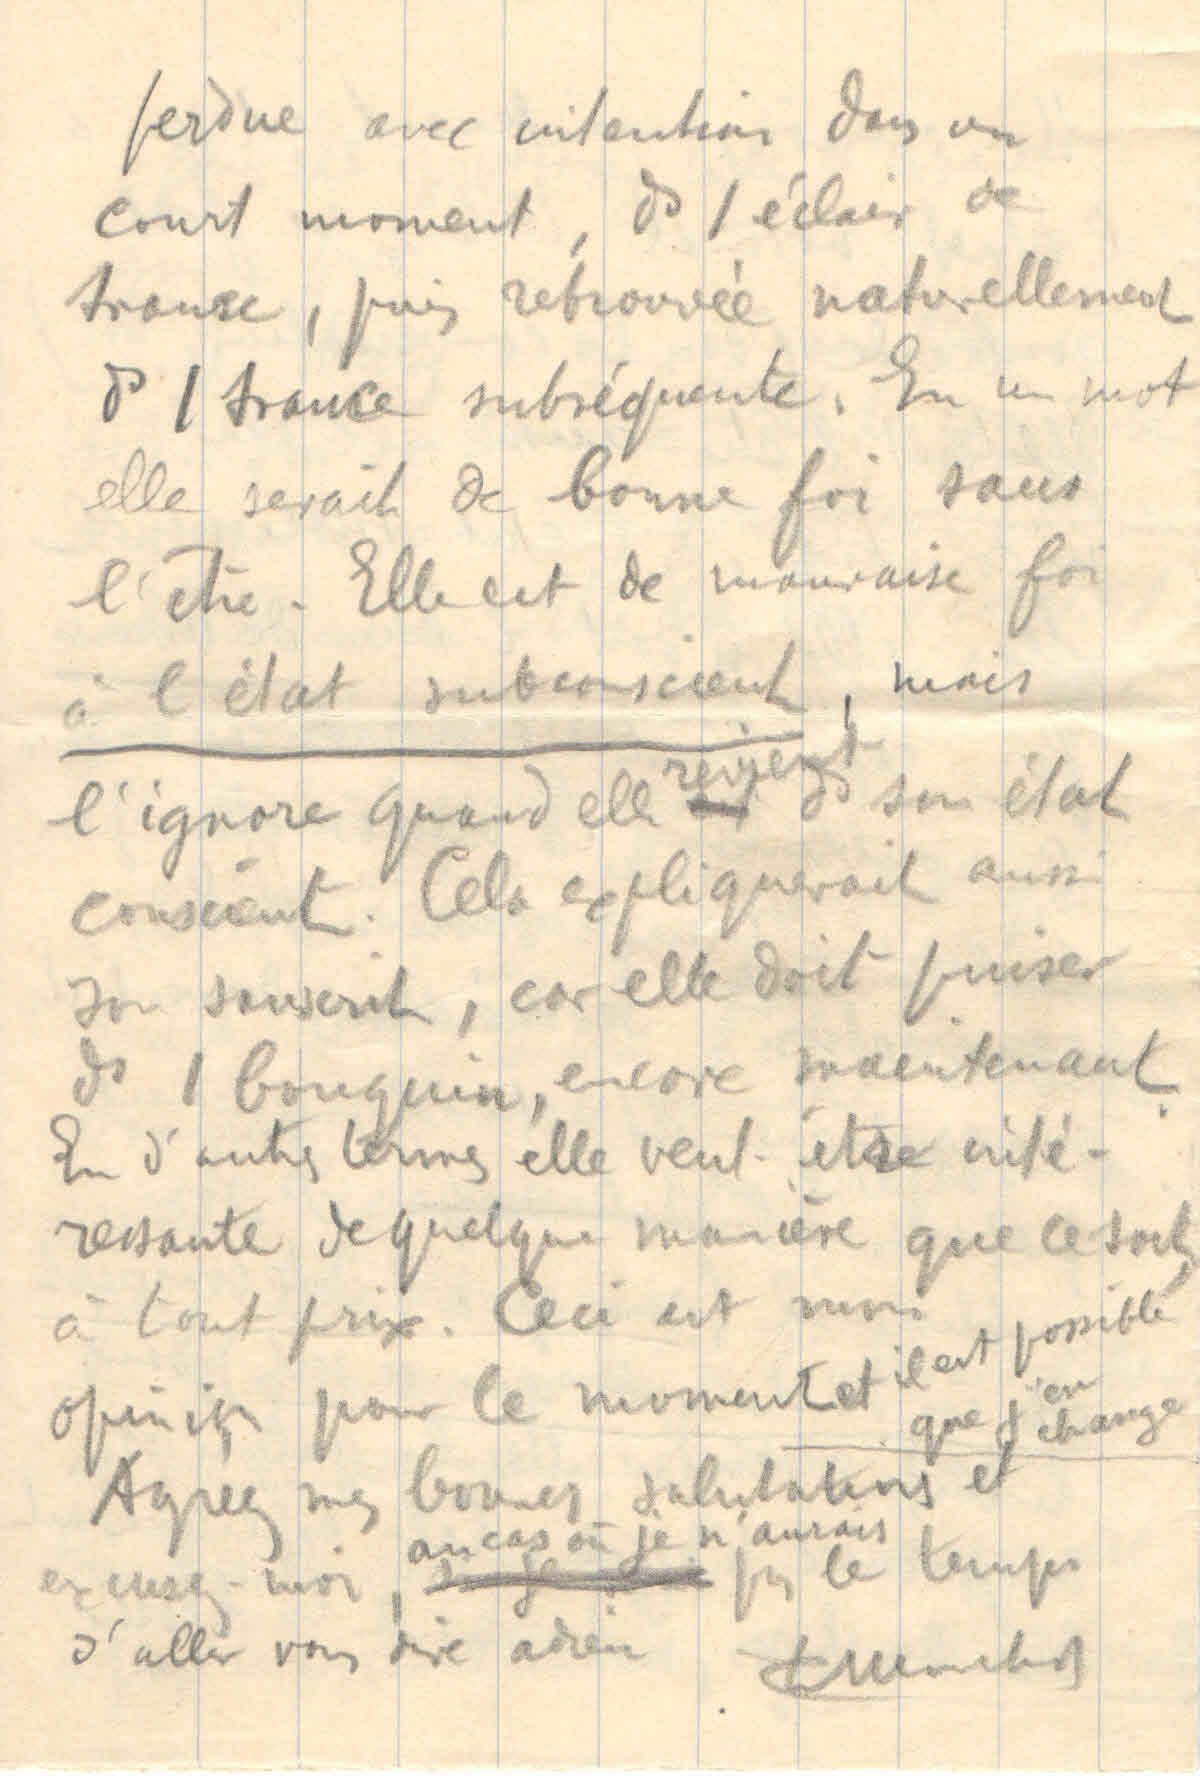 perdue avec intention dans un
court moment, ds 1 éclair de
transe, puis retrouvée naturellement
ds 1 trance subséquente. En un mot
elle serait de bonne foi sans
l'être. Elle est de mauvaise foi
à l'état subconscient, mais
l'ignore quand elle revient ds son état
conscient. Cela expliquerait aussi
son sanscrit, car elle doit puiser
ds 1 bouquin, encore maintenant.
En d'autres termes elle veut être inté-
ressante de quelque manière que ce soit,
à tout prix. Ceci est mon
opinion pour le moment et il est possible
que j'en change
Agréez mes bonnes salutations et
excusez-moi, au cas où je n'aurais pas le temps
d'aller vous dire adieu